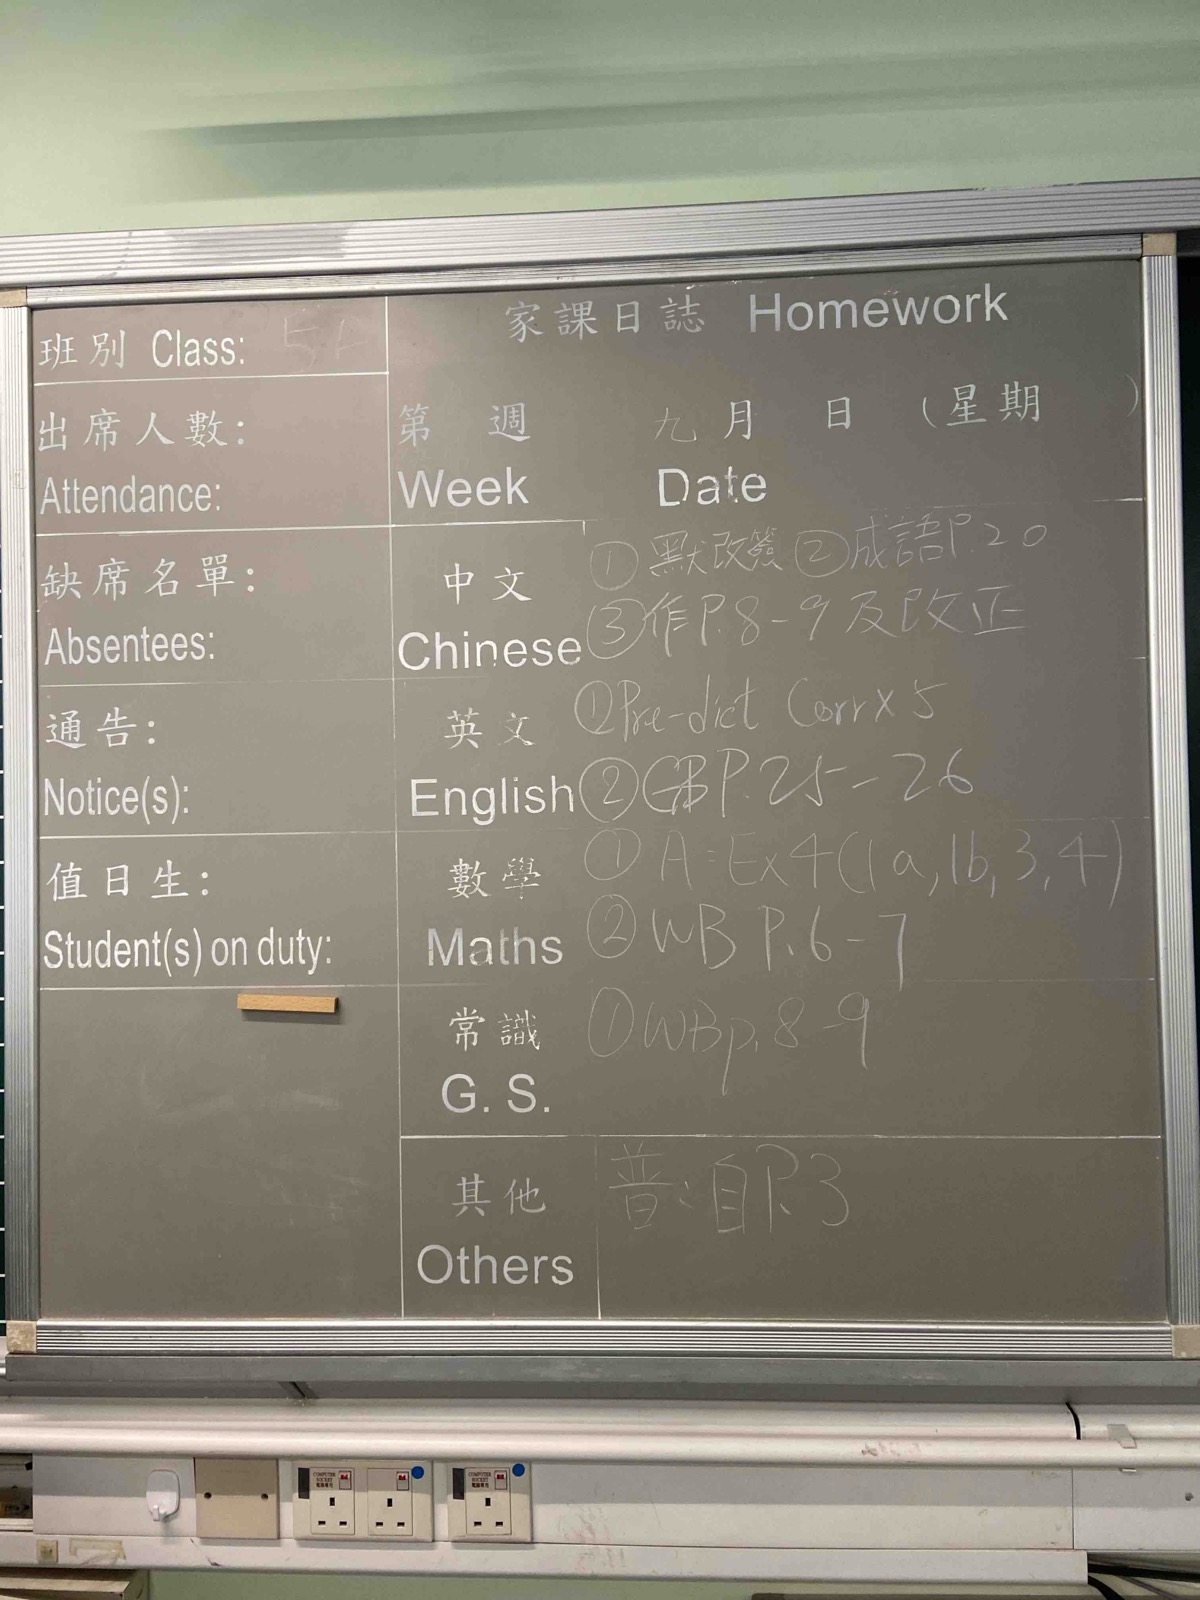 家課日誌 Homework
班別 Class: 5A
出席人數:
Attendance:
第 週 九月 日 (星期 )
Week Date
缺席名單:
Absentees:
中文
Chinese
①默改簽 ②成語P.20
③作P.8-9及改正
通告:
Notice(s):
英文
English
①Pre-dict Corr x 5
②GB P.25-26
值日生:
Student(s) on duty:
數學
Maths
① A: Ex4(1a, 1b, 3, 4)
② WB P.6-7
常識
G. S.
①WBp.8-9
其他
Others
普:自P.3
COMPUTER
SOCKET
COMPUTER
SOCKET